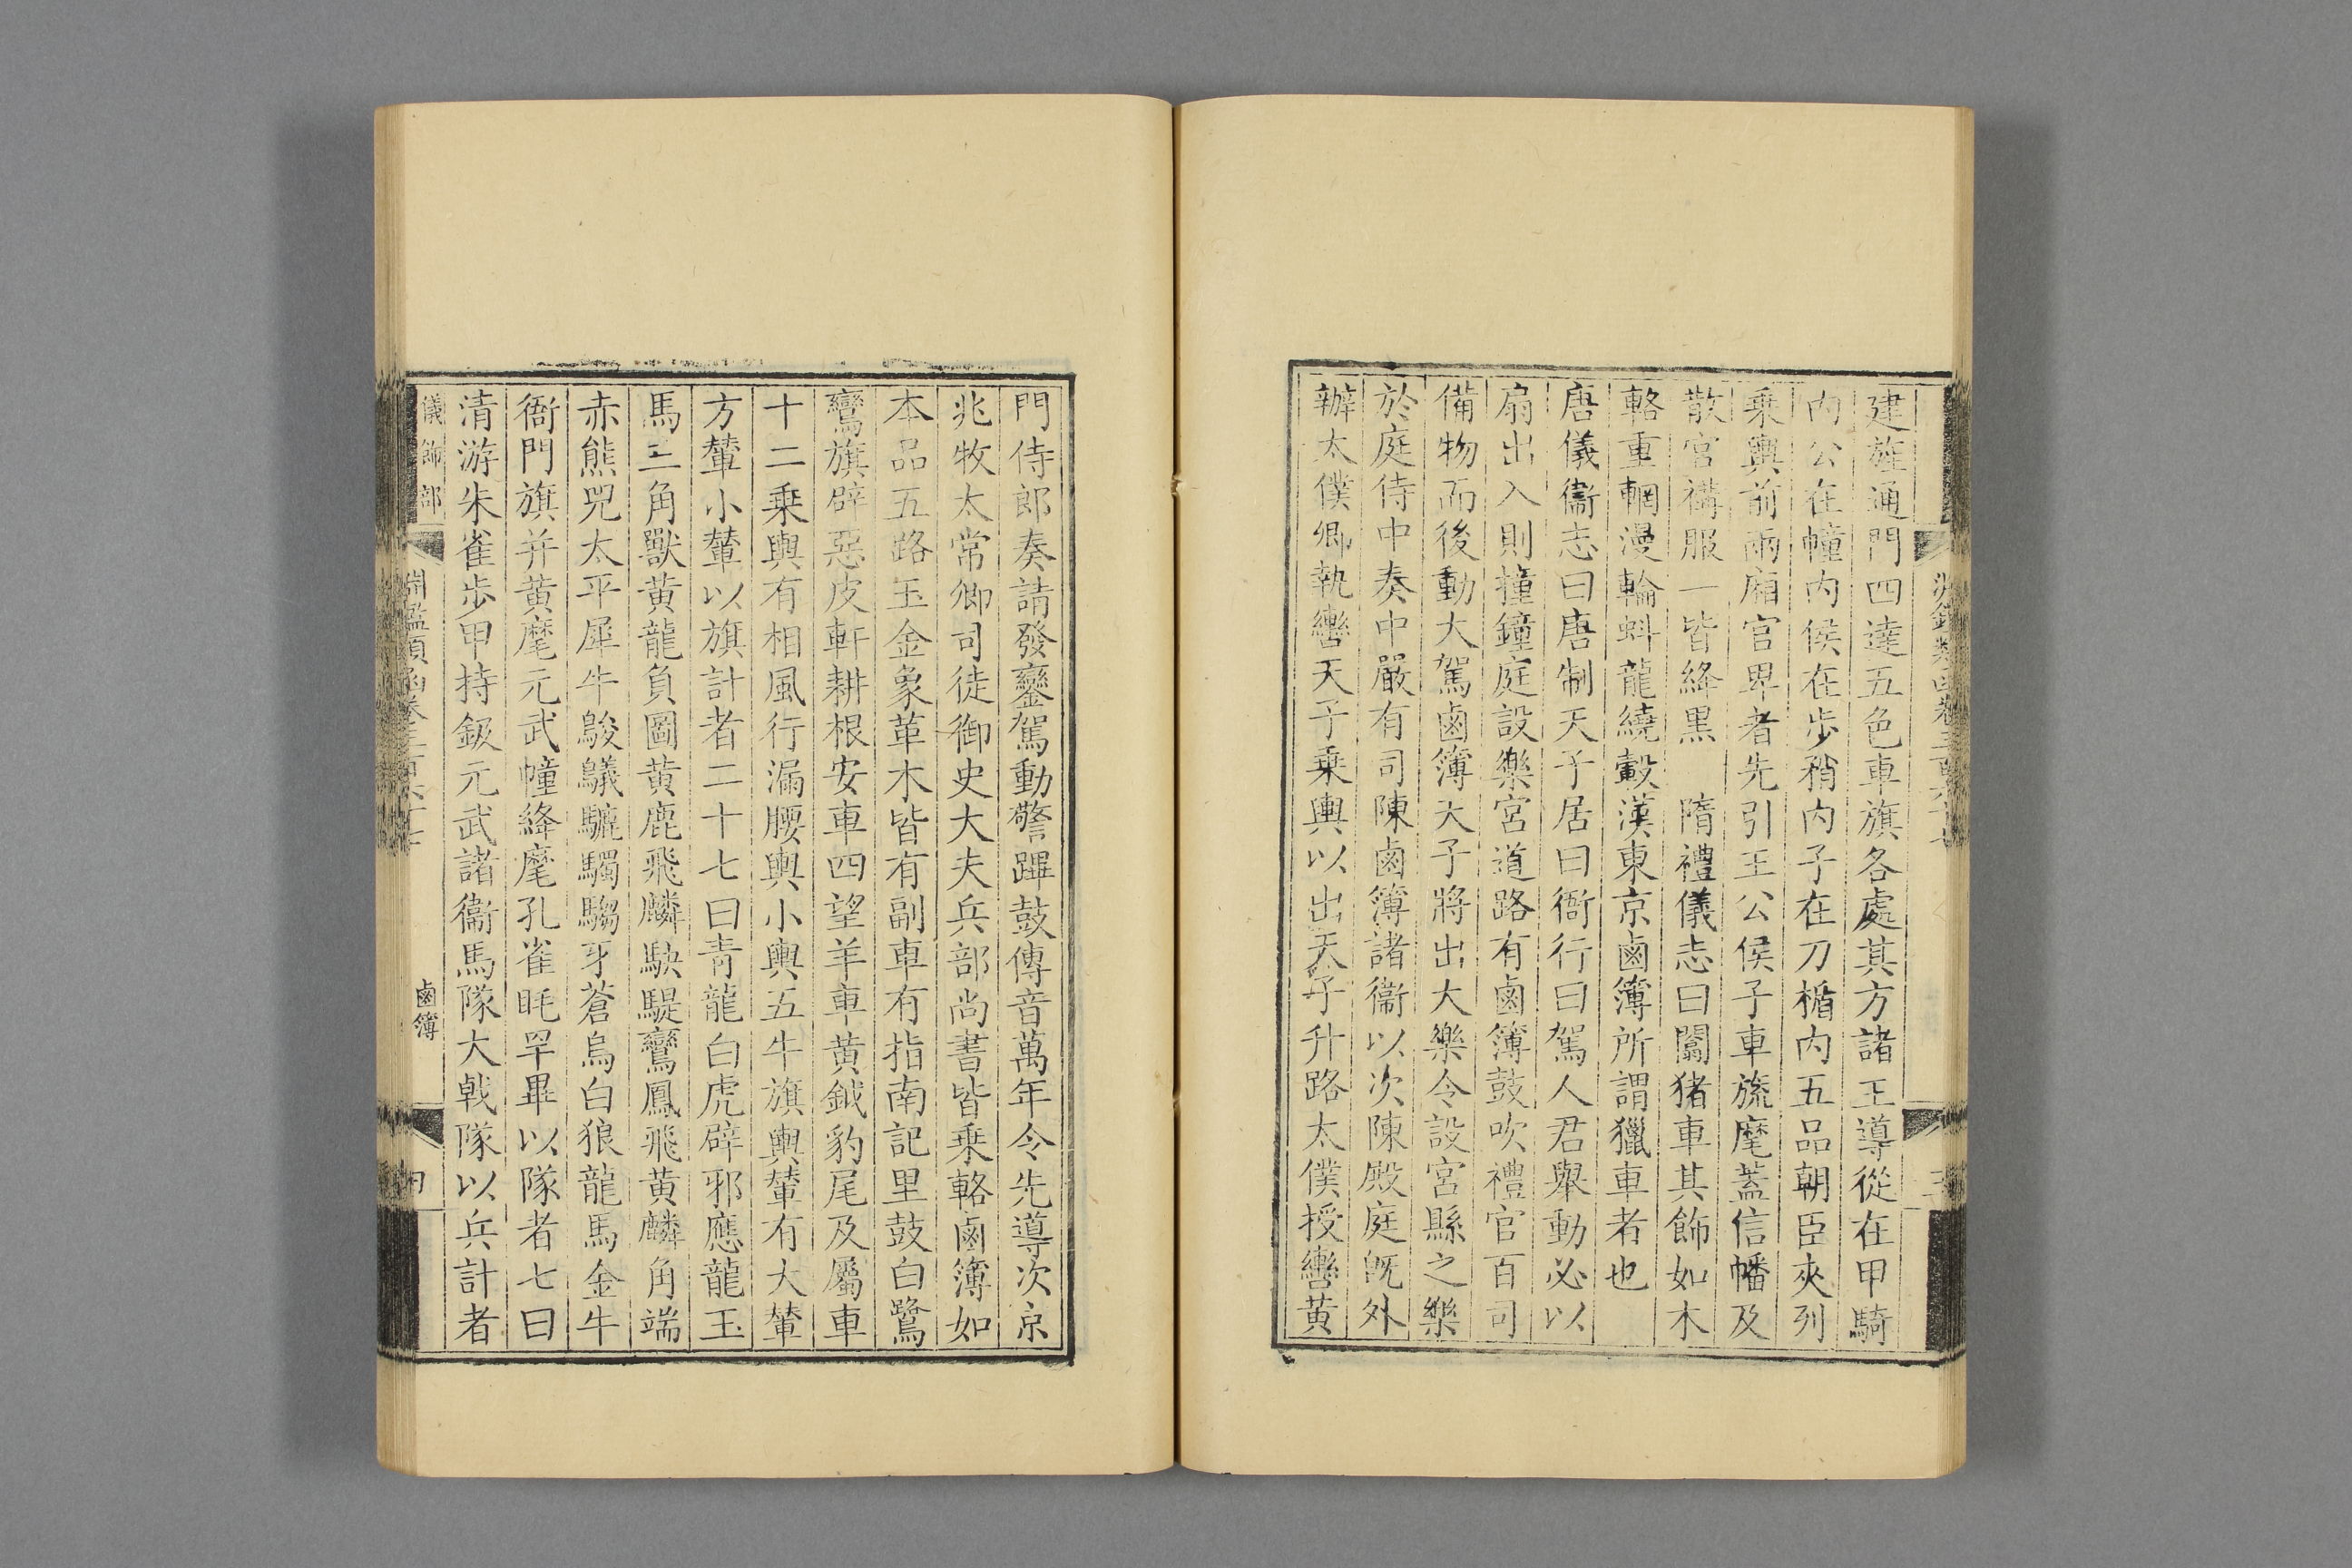 建旌通門四達五色車旗各處其方諸王導從在甲騎
內公在幢內侯在步矟內子在刀楯內五品朝臣夾列
乗輿前兩廂官卑者先引王公侯子車旒麾蓋信幡及
散官構服一皆絳黒　隋禮儀志曰闟猪車其飾如木
輅重輞漫輪蚪龍繞轂漢東京鹵簿所謂獵車者也
唐儀衞志曰唐制天子居曰衙行曰駕人君舉動必以
扇出入則撞鐘庭設樂宮道路有鹵簿鼓吹禮官百司
備物而後動大駕鹵簿天子將出大樂令設宮縣之樂
於庭侍中奏中嚴有司陳鹵簿諸衞以次陳殿庭旣外
辦太僕卿執轡天子乗輿以出天子升路太僕授轡黃
門侍郎奏請發鑾駕動警蹕鼓傳音萬年令先導次京
兆牧太常卿司徒御史大夫兵部尚書皆乗輅鹵簿如
本品五路玉金象革木皆有副車有指南記里鼓白鷺
鸞旗辟惡皮軒耕根安車四望羊車黃鉞豹尾及屬車
十二乗輿有相風行漏腰輿小輿五牛旗輿輦有大輦
方輦小輦以旗計者二十七曰青龍白虎辟邪應龍玉
馬三角獸黃龍負圖黃鹿飛麟駃騠鸞鳳飛黃麟角端
赤熊兕太平犀牛鵔鸃騼䮷騶牙蒼烏白狼龍馬金牛
衙門旗并黃麾元武幢絳麾孔雀眊罕畢以隊者七曰
清游朱雀步甲持鈒元武諸衞馬隊大戟隊以兵計者
儀飾部
淵鑑類函卷三百六十七
鹵簿